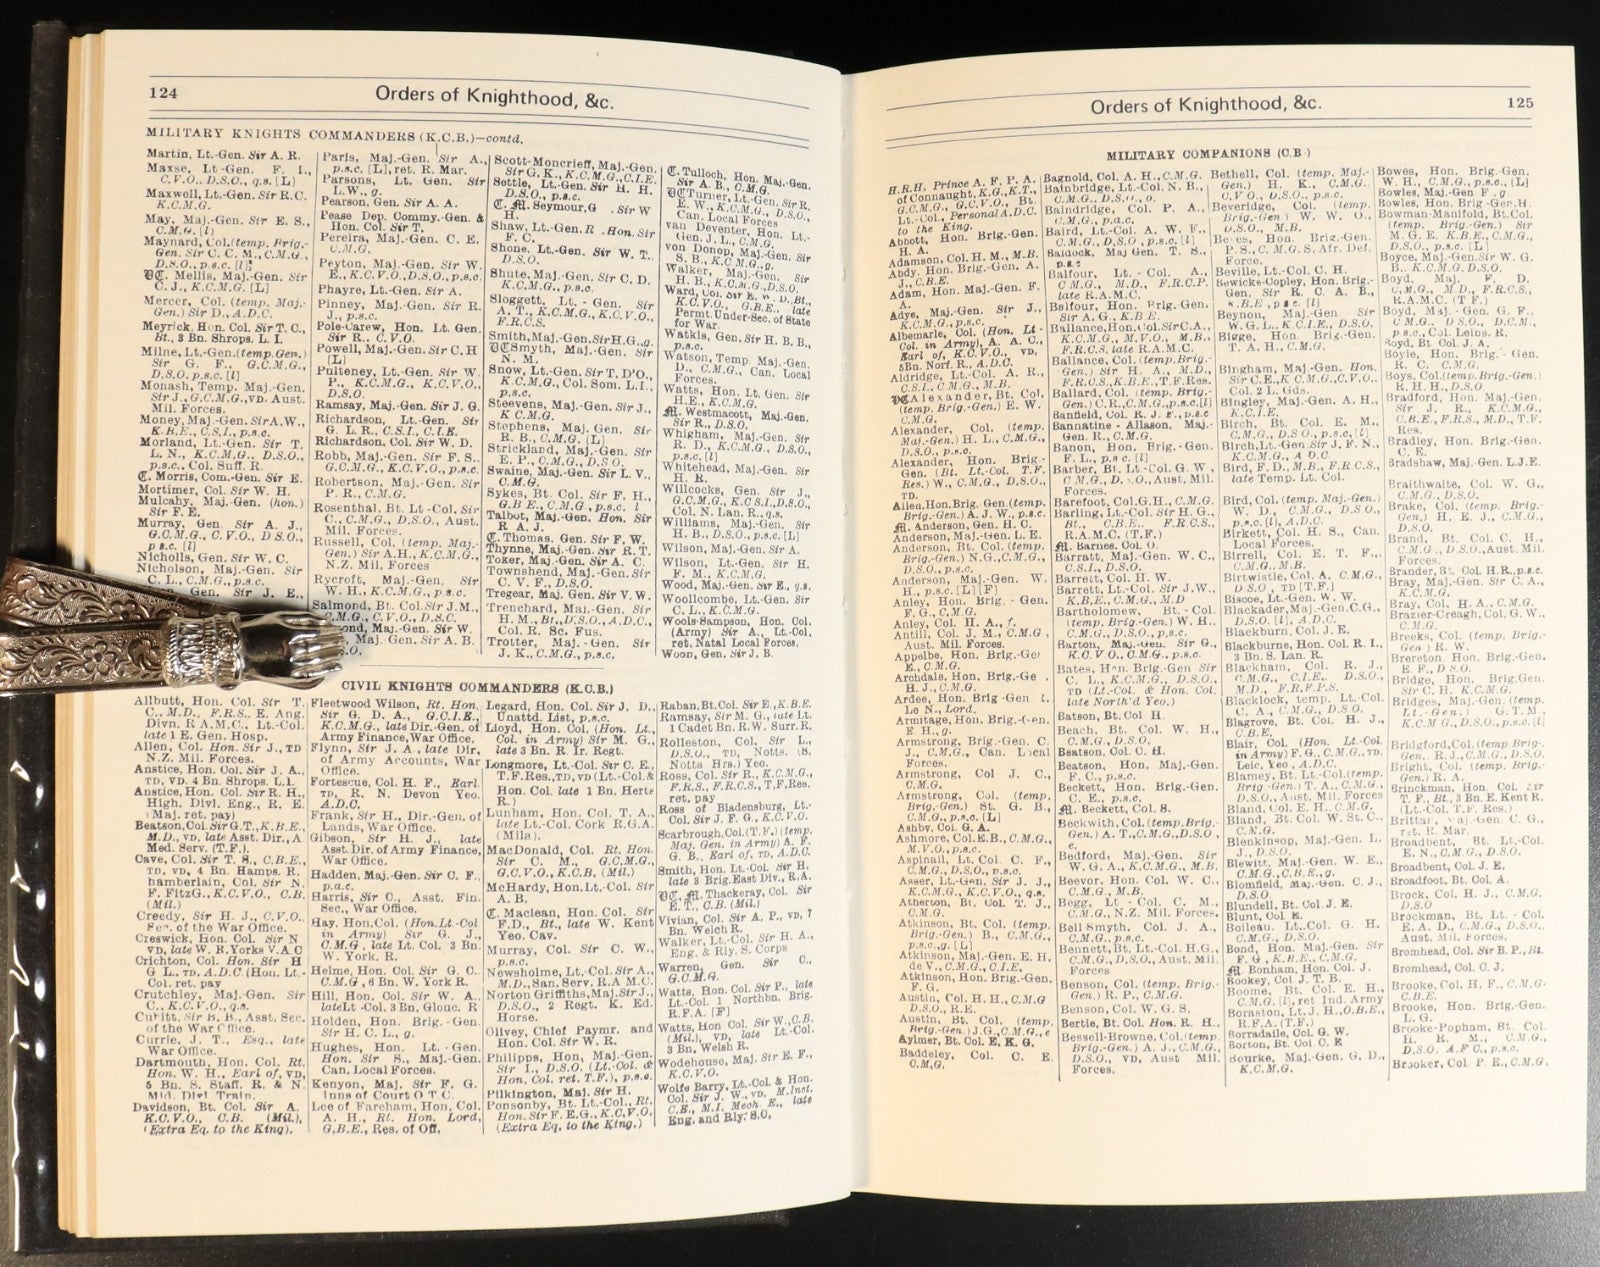 124
Orders of Knighthood, &c.
MILITARY KNIGHTS COMMANDERS (K.C.B.)—contd.
Martin, Lt.-Gen. Sir A. R.
Maxse, Lt-Gen. F. I.,
C.V.O., D.S.O., q.s. [L]
Maxwell, Lt-Gen. Sir R.C.
K.C.M.G.
May, Maj.-Gen. Sir E. S.,
C.M.G. [l]
Maynard, Col. (temp. Brig.-
Gen. Sir C. C. M., C.M.G.,
D.S.O., p.s.c. [l]
Mellis, Maj.-Gen. Sir
C. J., K.C.M.G. [L]
Mercer, Col. (temp. Maj.-
Gen.) Sir D., A.D.C.
Meyrick, Hon. Col. Sir T. C.,
Bt., 3 Bn. Shrops. L. I.
Milne, Lt.-Gen. (temp. Gen.)
Sir G. F., G.C.M.G.,
D.S.O. p.s.c. [l]
Monash, Temp. Maj.-Gen.
Sir J., G.C.M.G., VD. Aust.
Mil. Forces.
Money, Maj.-Gen. Sir A.W.,
K.B.E., C.S.I., p.s.c.
Morland, Lt.-Gen. Sir T.
L. N., K.C.M.G., D.S.O.,
p.s.c., Col. Suff. R.
C. Morris, Com.-Gen. Sir E.
Mortimer, Col. Sir W. H.
Mulcahy, Maj.-Gen. (hon.)
Sir F. E.
Murray, Gen. Sir A. J.,
G.C.M.G., C.V.O., D S O.,
p s c. [l]
Nicholls, Gen. Sir W. C.
Nicholson, Maj.-Gen. Sir
C. L., C.M.G., p.s.c.
Gen. Sir J. E.,
Paris, Maj.-Gen. Sir A.,
p.s.c. [L], ret. R. Mar.
Parsons, Lt. Gen. Sir
L.W., g.
Pearson, Gen. Sir A. A.
Pease Dep. Commy.-Gen. &
Hon. Col. Sir T.
Pereira, Maj.-Gen. C. E.
C.M.G.
Peyton, Maj.-Gen. Sir W.
E., K.C.V.O., D.S.O., p.s.c.
Phayre, Lt.-Gen. Sir A.
Pinney, Maj.-Gen. Sir R.
J., p.s.c.
Pole-Carew, Hon. Lt. Gen.
Sir R., C.V.O.
Powell, Maj.-Gen. Sir C.H
[L]
Pulteney, Lt.-Gen. Sir W.
P., K.C.M.G., K.C.V.O.,
D.S.O.
Ramsay, Maj.-Gen. Sir J. G.
Richardson, Lt.-Gen. Sir
G. L R., C.S.I., C.I.E.
Richardson, Col. Sir W. D.
Robb, Maj.-Gen. Sir F. S.,
G.C.M.G., K.C.V.O., p.s.c.
Robertson, Maj.-Gen. Sir
P. R., C.M.G.
Rosenthal, Bt. Lt-Col. Sir
C., C.M.G., D.S.O., Aust.
Mil. Forces.
Russell, Col. (temp. Maj.-
Gen.) Sir A.H., K.C.M.G.,
N.Z. Mil. Forces
Rycroft, Maj.-Gen. Sir
W. H., K.C.M.G., p.s.c.
Salmond, Bt. Col. Sir J.M.,
C.M.G., C.V.O., D.S.C.
Maj.-Gen. Sir W.
Maj. Gen. Sir A. B.
Scott-Moncrieff, Maj.-Gen.
Sir G. K., K.C.M.G., C.I.E.
Settle, Lt.-Gen. Sir H. H.
D.S.O., p.s.c.
C. M. Seymour, G . Sir W
H.
Shaw, Lt.-Gen. R . Hon. Sir
F. C.
Shone, Lt.-Gen. Sir W. T.
D.S.O.
Shute, Maj.-Gen. Sir C. D.
K.C.M.G., p.s.c.
Sloggett, Lt.-Gen. Sir
A. T., K.C.M.G., K.C.V.O.,
F.R.C.S.
Smith, Maj.-Gen. Sir H.G., g.
Smyth, Maj.-Gen. Sir
N. M.
Snow, Lt.-Gen. Sir T. D'O.,
K.C.M.G., Col. Som. L.I.,
p.s.c.
Steevens, Maj.-Gen. Sir J.,
K C.M.G.
Stephens, Maj. Gen. Sir
R. B., C.M.G. [L]
Strickland, Maj.-Gen. Sir
E. P., C.M.G., D.S O.
Swaine, Maj.-Gen. Sir L. V.,
C.M.G.
Sykes, Bt. Col. Sir F. H.,
G.B E., C.M.G., p.s.c. l
Talbot, Maj.-Gen. Hon. Sir
R A. J.
C. Thomas, Gen. Sir F. W.
Thynne, Maj.-Gen. Sir R. T.
Toker, Maj.-Gen. Sir A. C.
Townshend, Maj.-Gen. Sir
C. V. F., D.S.O.
Tregear, Maj. Gen. Sir V. W.
Trenchard, Maj.-Gen. Sir
H. M., Bt., D.S.O., A.D.C.,
Col. R. Sc. Fus.
Trotter, Maj.-Gen. Sir
J. K., C.M.G., p.s.c.
C. Tulloch, Hon. Maj.-Gen.
Sir A. B., C.M.G.
Turner, Lt.-Gen. Sir R.
E. W., K.C.M.G., D.S.O.,
Can. Local Forces
van Deventer, Hon. Lt.-
Gen. J. L., C.M.G.
von Donop, Maj.-Gen. Sir
S. B., K.C.M.G., g.
Walker, Maj.-Gen. Sir
H. B., K.C.M.G., D.S.O.
Ward, Col. Sir E. W. D., Bt.,
K.C.V.O., G.B.E., late
Permt. Under-Sec. of State
for War.
Watkis, Gen. Sir H. B. B.,
p.s.c.
Watson, Temp. Maj.-Gen.
D., C.M.G., Can. Local
Forces.
Watts, Hon. Lt. Gen. Sir
H.E., K.C.M.G.
M. Westmacott, Maj.-Gen.
Sir R., D.S.O.
Whigham, Maj.-Gen. Sir
R. D., K.C.M.G., D.S.O.,
p.s.c. [l]
Whitehead, Maj.-Gen. Sir
H. R.
Willcocks, Gen. Sir J.,
G.C.M.G., K.C S.I., D.S.O.,
Col. N. Lan. R., q.s.
Williams, Maj.-Gen. Sir
H. B., D.S.O., p.s.c. [L]
Wilson, Maj.-Gen. Sir A.
Wilson, Lt.-Gen. Sir H.
F. M., K.C.M.G.
Wood, Maj.-Gen. Sir E., q.s.
Woollcombe, Lt.-Gen. Sir
C. L., K.C.M.G.
Wools-Sampson, Hon. Col.
(Army) Sir A., Lt.-Col,
ret. Natal Local Forces.
Woon, Gen. Sir J. B.
CIVIL KNIGHTS COMMANDERS (K.C.B.)
Allbutt, Hon. Col. Sir T.
C., M.D., F.R.S., E. Ang.
Divn. R A.M.C., Lt.-Col.
late 1 E. Gen. Hosp.
Allen, Col. Hon. Sir J., TD
N.Z. Mil. Forces.
Anstice, Hon. Col. Sir J. A.,
TD, VD, 4 Bn. Shrops. L.I.
Anstice, Hon. Col. Sir R. H.,
High. Divl. Eng., R. E.
(Maj. ret. pay)
Beatson, Col. Sir G.T., K.B.E.,
M.D., VD, late Asst. Dir., A
Med. Serv. (T.F.).
Cave, Col. Sir T. S., C.B.E.,
TD, VD, 4 Bn. Hamps. R.
hamberlain, Col. Sir N.
F. FitzG., K.C.V.O., C.B.
(Mil.)
Creedy, Sir H. J., C.V.O.,
Sec. of the War Office.
Creswick, Hon. Col. Sir N
VD, late W. R. Yorks V.A.C
Crichton, Col. Hon. Sir H
G L., TD, A.D.C. (Hon. Lt.-
Col. ret. pay
Crutchley, Maj.-Gen. Sir
C., K.C.V.O., q.s.
Cubitt, Sir B. B., Asst. Sec.
of the War Office.
Currie, J. T., Esq., late
War Office.
Dartmouth, Hon. Col. Rt.
Hon. W. H., Earl of, VD,
5 Bn. S. Staff. R. & N.
Mid. Divl Train.
Davidson, Bt. Col. Sir A.
K.C.V.O., C.B. (Mil.),
(Extra Eq. to the King).
Fleetwood Wilson, Rt. Hon.
Sir G. D. A., G.C.I.E.,
K.C.M.G., late Dir.-Gen. of
Army Finance, War Office.
Flynn, Sir J. A., late Dir,
of Army Accounts, War
Office.
Fortescue, Col. H. F., Earl.
TD, R. N. Devon Yeo.
A.D.C.
Frank, Sir H., Dir.-Gen. of
Lands, War Office.
Gibson, Sir H. J., late
Asst. Dir. of Army Finance,
War Office.
Hadden, Maj.-Gen. Sir C. F.,
p.a.c.
Harris, Sir C., Asst. Fin.
Sec., War Office.
Hay, Hon. Col. (Hon. Lt.-Col
in Army) Sir G. J.,
C.M.G, late Lt. Col. 3 Bn.
W. York. R.
Helme, Hon. Col. Sir G. C.,
C.M.G, 6 Bn. W. York R.
Hill, Hon. Col. Sir W. A.,
late Lt.-Col. 3 Bn. Glouc. R
Holden, Hon. Brig.-Gen.
Sir H. C. L., g.
Hughes, Hon. Lt.-Gen.
Hon. Sir S., Maj.-Gen.
Can. Local Forces.
Kenyon, Maj. Sir F. G.
Inns of Court O T C.
Lee of Fareham, Hon. Col.
A. H., Rt. Hon. Lord,
G.B.E., Res. of Off.
Legard, Hon. Col. Sir J. D.,
Unattd. List, p.s.c.
Lloyd, Hon. Col. (Hon. Lt.,
Col. in Army) Sir M. G.,
late 3 Bn. R. Ir. Regt.
Longmore, Lt.-Col. Sir C. E.,
T.F.Res., TD, VD (Lt.-Col. &
Hon. Col. late 1 Bn. Herts
R.)
Lunham, Hon. Col. T. A.,
late Lt.-Col. Cork R.G.A
(Mila)
MacDonald, Col. Rt. Hon.
Sir C. M., G.C.M.G.,
G.C.V.O., K.C.B. (Mil.)
McHardy, Hon. Lt.-Col. Sir
A. B.
C. Maclean, Hon. Col. Sir
F.D., Bt., late W. Kent
Yeo. Cav.
Murray, Col. Sir C. W.,
p.s.c.
Newsholme, Lt.-Col. Sir A.,
M.D., San. Serv. R A M.C.
Norton Griffiths, Maj. Sir J.,
D.S.O., 2 Regt. K. Ed.
Horse
Olivey, Chief Paymr. and
Hon. Col. Sir W. R.
Philipps, Hon. Maj.-Gen.
Sir I., D.S.O. (Lt.-Col. &
Hon. Col. ret. T.F.), p.s.c.
Pilkington, Maj. Sir H.
Ponsonby, Bt. Lt.-Col., Rt.
Hon. Sir F.E.G., K.C.V.O.
(Extra Eq. to the King.)
Raban, Bt. Col. Sir E., K.B.E.
Ramsay, Sir M. G., late Lt.
1 Cadet Bn. R.W. Surr. R.
Rolleston, Col. Sir L.,
D.S.O., TD, Notts. (S.
Notts Hrs.) Yeo.
Ross, Col. Sir R., K.C.M.G.,
F.R.S., F.R.C.S., T.F.Res.
ret. pay
Ross of Bladensburg, Lt.-
Col. Sir J. F. G., K.C.V.O.
Scarbrough, Col. (T.F.) (temp.
Maj. Gen. in Army) A. F.
G. B., Earl of, TD, A.D.C.
Smith, Hon. Lt.-Col. Sir H.
late 3 Brig. East Div., R.A.
M. Thackeray, Col. Sir
E. T., C.B. (Mil.)
Vivian, Col. Sir A. P., VD, 7
Bn. Welch R.
Walker, Lt.-Col. Sir H. A.,
Eng. & Rly. S. Corps
Warren, Gen. Sir C.,
G.C.M.G.
Watts, Hon. Col. Sir P., late
Lt.-Col. 1 Northbn. Brig.
R.F.A. [F]
Watts, Hon Col. Sir W., C.B.
(Mil.), VD, late Lt.-Col.
3 Bn. Welsh R.
Wodehouse, Maj. Sir E. F.,
K.C.V.O.
Wolfe Barry, Lt.-Col. & Hon.
Col. Sir J. W., VD, M.Inst.
C.E., M.I. Mech. E., late
Eng. and Rly. S.C.
Orders of Knighthood, &c.
125
MILITARY COMPANIONS (C.B.)
H.R.H. Prince A. F. P. A.
of Connaught, K.G., K.T.,
G.C.M.G., G.C.V.O., Bt.
Lt.-Col., Personal A.D.C.
to the King.
Abbott, Hon. Brig.-Gen.
H. A.
Adamson, Col. H. M., M.B.
Abdy, Hon. Brig.-Gen. A.
J., C.B.E.
Adam, Hon. Maj.-Gen. F.
A.
Adye, Maj.-Gen. Sir J.,
K.C.M.G., p.s.c.
Albemarle, Col. (Hon. Lt.-
Col. in Army), A. A. C.,
Earl of, K.C.V.O., VD,
5 Bn. Norf. R., A.D.C.
Aldridge, Lt.-Col. A. R.,
C.S.I., C M.G., M.B.
Alexander, Bt. Col.
(temp. Brig.-Gen.) E. W.
C.M.G.
Alexander, Col. (temp.
Maj.-Gen.) H. L., C.M.G.,
D.S.O., p.s.c.
Alexander, Hon. Brig.-
Gen. (Bt. Lt.-Col. T.F.
Res.) W., C.M.G., D.S.O.,
TD.
Allen, Hon. Brig. Gen. (temp.
Brig. Gen.) A. J. W., p.s.c.
M. Anderson, Gen. H. C.
Anderson, Maj.-Gen. L. E.
Anderson, Bt. Col. (temp.
Brig.-Gen.) N.G., C.M.G.,
D.S.O.
Anderson, Maj.-Gen. W.
H., p.s.c. [L] [F]
Anley, Hon. Brig.-Gen.
F. G., C.M.G.
Anley, Col. H. A., f.
Antill, Col. J. M., C.M.G,
Aust. Mil. Forces.
Appelbe, Hon. Brig.-Gen
E., C.M.G.
Archdale, Hon. Brig.-Ge .
H. J., C.M.G.
Ardee, Hon. Brig-Gen
Le N., Lord.
Armitage, Hon. Brig.-Gen.
E. H., g.
Armstrong, Brig.-Gen. C.
J., C.M.G., Can. Local
Forces.
Armstrong, Col J. C.,
C.M.G.
Armstrong, Col. (temp.
Brig.-Gen.) St. G. B.,
C.M.G., p.s.c. [L]
Ashby, Col. G. A.
Ashmore, Col. E.B., C.M.G.,
M.V.O., p.s.c.
Aspinall, Lt. Col. C. F.,
C.M.G., D.S.O., p.s.c.
Asser, Lt.-Gen. Sir J. J.,
K.C.M.G., K.C.V.O., q.s.
Atherton, Bt. Col. T. J.,
C.M.G.
Atkinson, Bt. Col. (temp.
Brig.-Gen.) B., C.M.G.,
p.s.c., g. [L]
Atkinson, Maj.-Gen. E. H.
de V., C.M.G., C.I.E,
Atkinson, Hon. Brig.-Gen.
F. G.
Austin, Col. H. H., C.M.G
D.S.O., R.E.
Austin, Bt. Col. (temp.
Brig.-Gen.) J.G., C.M.G., e
Aylmer, Bt. Col. E. K. G.
Baddeley, Col. C. E.
C.M.G.
Bagnold, Col. A. H., C.M.G.
Bainbridge, Lt.-Col. N. B.,
C.M.G., D.S.O., o.
Baindridge, Col. P. A.,
C.M.G., p.a.c.
Baird, Lt.-Col. A. W. F.,
C.M.G., D.S.O, p.s.c. [l]
Baldock, Maj Gen. T. S.,
p.s c
Balfour, Lt.-Col. A.,
C M.G., M.D., F.R.C.P.
late R.A.M.C.
Balfour, Hon. Brig. Gen.
Sir A. G., K.B E.
Ballance, Hon. Col. Sir C.A.,
K.C.M.G., M.V.O., M.B.,
F.R.C.S. late R.A.M.C.
Ballance, Col. (temp. Brig.-
Gen.) Sir H. A., M.D.,
F.R.C.S., K.B.E., T.F. Res.
Ballard, Col. (temp. Brig.-
Gen.) C.R., C.M.G., p.s.c. [l]
Banfield, Col. R. J. F., p.s.c
Bannatine-Allason, Maj.-
Gen. R., C.M.G.
Banon, Hon. Brig.-Gen.
F. L., p.s.c. [l]
Barber, Bt. Lt-Col. G. W.,
C M G., D.S.O., Aust. Mil.
Forces.
Barefoot, Col. G.H., C.M.G.
Barling, Lt.-Col. Sir H. G.,
Bt., C.B.E., F.R.C.S.,
R.A.M.C. (T.F.)
M. Barnes, Col. O.
Barratt, Maj.-Gen. W. C.,
C.S.I., D.S.O.
Barrett, Col. H. W.
Barrett, Lt.-Col. Sir J.W.,
K.B.E., C.M.G., M.D
Bartholomew, Bt.-Col.
(temp. Brig.-Gen.) W. H.,
C.M.G., D.S.O., p.s.c.
Barton, Maj.-Gen. Sir G.,
K.C.V.O., C.M.G., p.s.c.
Bates, Hon. Brig.-Gen Sir
C. L., K.C.M.G., D.S.O.,
TD (Lt.-Col. & Hon. Col.
late North'd Yeo.)
Batson, Bt. Col H.
Beach, Bt. Col. W. H.,
C.M.G., D.S.O.
Beatson, Col. C. H.
Beatson, Hon. Maj.-Gen.
F. C., p.s.c.
Beckett, Hon. Brig.-Gen.
C. E., p.s.c.
M. Beckett, Col. S.
Beckwith, Col. (temp. Brig.-
Gen.) A. T., C.M.G., D.S.O,
e.
Bedford, Maj.-Gen. Sir
W. G. A., K.C.M.G., M.B.
Beevor, Hon. Col. W. C.,
C.M.G., M.B.
Begg, Lt.-Col. C. M.,
C.M.G., N.Z. Mil. Forces.
Bell-Smyth, Col. J. A.,
C.M.G., p.s.c.
Bennett, Bt. Lt.-Col. H.G.,
C.M.G., D.S.O., Aust. Mil.
Forces
Benson, Col. (temp. Brig.-
Gen.) R. P., C.M.G.
Benson, Col. W. G. S.
Bertie, Bt. Col. Hon. R. H.,
Bessell-Browne, Col. (temp.
Brig.-Gen.) A. J., C.M.G.,
D.S.O., VD, Aust Mil.
Forces.
Bethell, Col. (temp. Maj.-
Gen.) H. K., C.M.G.,
C V.O., D.S.O., p.s.c.
Beveridge, Col. (temp.
Brig.-Gen.) W. W. O.,
D.S.O., M.B.
Beves, Hon. Brig.-Gen.
P. S., C.M.G. S. Afr. Def.
Force.
Beville, Lt.-Col. C. H.
Bewicke-Copley, Hon. Brig.-
Gen. Sir R. C. A. B.,
K.B.E, p.s.c. [l]
Beynon, Maj.-Gen Sir
W. G. L., K.C.I.E., D.S.O.
Bigge, Hon. Brig.-Gen.
T. A. H., C.M.G.
Bingham, Maj.-Gen. Hon.
Sir C.E., K.C M.G., C.V.O.,
Col. 2 L. Gds.
Bingley, Maj.-Gen. A. H.,
K.C.I.E.
Birch, Bt. Col. E. M.,
C.M.G., D.S O., p.s.c. [l]
Birch, Lt.-Gen. Sir J. F. N.,
K.C.M.G., A D C.
Bird, F. D., M.B., F.R.C.S.,
late Temp. Lt. Col.
Bird, Col. (temp. Maj.-Gen.)
W. D., C.M.G., D.S.O.,
p.s.c. [l], A.D.C.
Birkett, Col. H. S., Can.
Local Forces.
Birrell, Col. E. T. F.,
C.M.G., M.B.
Birtwistle, Col. A., C.M.G.,
D.S.O, TD [T.F.]
Biscoe, Lt.-Gen. W. W.
Blackader, Maj.-Gen. C.G.,
D.S.O. [l], A.D.C.
Blackburn, Col. J. E.
Blackburne, Hon. Col. R. I.,
3 Bn. S. Lan. R.
Blackham, Col. R. J.,
C.M.G., C.I.E., D.S.O.,
M.D., F.R.F.P.S.
Blacklock, temp. Lt.-Col.
C. A., C.M.G., D.S.O.
Blagrove, Bt. Col. H. J.,
C.B.E.
Blair, Col. (Hon. Lt.-Col.
in Army) F. G., C.M.G., TD,
Leic. Yeo., A.D.C.
Blamey, Bt. Lt.-Col. (temp.
Brig.-Gen.) T. A., C.M.G.,
D.S.O., Aust. Mil. Forces
Bland, Col. E. H., C M.G.
Bland, Bt. Col. W. St. C.,
C.M.G.
Blenkinsop, Maj.-Gen. L.
J., D.S.O.
Blewitt, Maj.-Gen. W. E.,
C.M.G., C.B.E., g.
Blomfield, Maj.-Gen. C. J.,
D.S.O.
Blundell, Bt. Col. J. E.
Blunt, Col. E.
Boileau, Lt.-Col. G. H.
C.M.G., D.S.O.
Bond, Hon. Maj.-Gen. Sir
F. G., K.B.E., C.M.G.
M. Bonham, Hon. Col. J.
Bookey, Col. J. T. B.
Boome, Bt. Col. E. H.,
C.M.G. [l], ret. Ind. Army
Boraston, Lt. J.H., O.B.E.,
R.F.A. (T.F.)
Borradaile, Col. G. W.
Borton, Bt. Col. C E
Bourke, Maj.-Gen. G. D.,
K.C.M.G.
Bowes, Hon. Brig.-Gen.
W. H., C.M.G., p.s.c., [L]
Bowles, Maj.-Gen F., g
Bowles, Hon. Brig-Gen. H.
Bowman-Manifold, Bt. Col.
(temp. Brig.-Gen.) Sir
M. G. E. K.B.E., C.M.G.,
D.S.O., p.s.c. [L]
Boyce, Maj.-Gen. Sir W. G.
B., K.C.M.G. D.S.O.
Boyd, Maj. F. D.
C.M.G., M.D., F.R.C.S.,
R.A.M.C. (T.F.)
Boyd, Maj.-Gen. G. F.,
C M.G., D.S.O., D.C.M.,
p.s.c., Col. Leins. R.
Boyd, Bt. Col. J. A.
Boyle, Hon. Brig.-Gen.
R. C., C.M.G.
Boys, Col. (temp. Brig.-Gen.)
R. H. H., D.S.O
Bradford, Hon. Maj.-Gen.
Sir J. R., K.C.M.G.,
C.B.E., F.R.S., M.D., T.F.
Res.
Bradley, Hon. Brig.-Gen.
C. E.
Bradshaw, Maj.-Gen. L.J.E.
Braithwaite, Col. W. G.,
C.M.G., D.S.O.
Brake, Col. (temp. Brig.-
Gen.) H. E. J., C.M.G.,
D.S.O.
Brand, Bt. Col. C. H.,
C.M.G., D.S.O., Aust. Mil.
Forces.
Brander, Bt. Col. H.R., p.s.c.
Bray, Maj.-Gen. Sir C. A.,
K.C.M.G.
Bray, Col. H. A., C.M.G.
Brazier-Creagh, Col. G. W.
C.M.G.
Breeks, Col. (temp. Brig.-
Gen.) R. W.
Brereton, Hon. Brig-Gen.
E. F., D.S.O.
Bridge, Hon. Brig.-Gen.
Sir C. H. K.C.M.G.
Bridges, Maj.-Gen. (temp.
Lt.-Gen.) G.T.M.,
K.C.M.G., D.S.O., p.s.c. [l]
Bridgford, Col. (temp. Brig.-
Gen. R. J., C.M.G., D.S.O.
Bright, Col. (temp. Brig.-
Gen.) R. A.
Brinckman, Hon. Col. Sir
T. F., Bt., 3 Bn. E. Kent R.
(Lt.-Col. T.F. Res.)
Brittan, Maj.-Gen. C. G.,
ret. R. Mar.
Broadbent, Bt. Lt.-Col.
E. N., C.M.G., D.S.O.
Broadbent, Col. J. E.
Broadfoot, Bt. Col. A.
Brock, Col. H. J., C.M.G.
D.S.O
Brockman, Bt. Lt.-Col.
E. A. D., C.M.G., D.S.O.,
Aust. Mil. Forces.
Bromhead, Col. Sir B. P., Bt.
Bromhead, Col. C. J.
Brooke, Col. H. F., C.M.G.
C.B.E.
Brooke, Hon. Brig.-Gen.
L. G.
Brooke-Popham, Bt. Col.
H. R. M., C.M.G.,
D.S.O. A.F C., p.s.c.
Brooker, Col. P E., C.M.G,